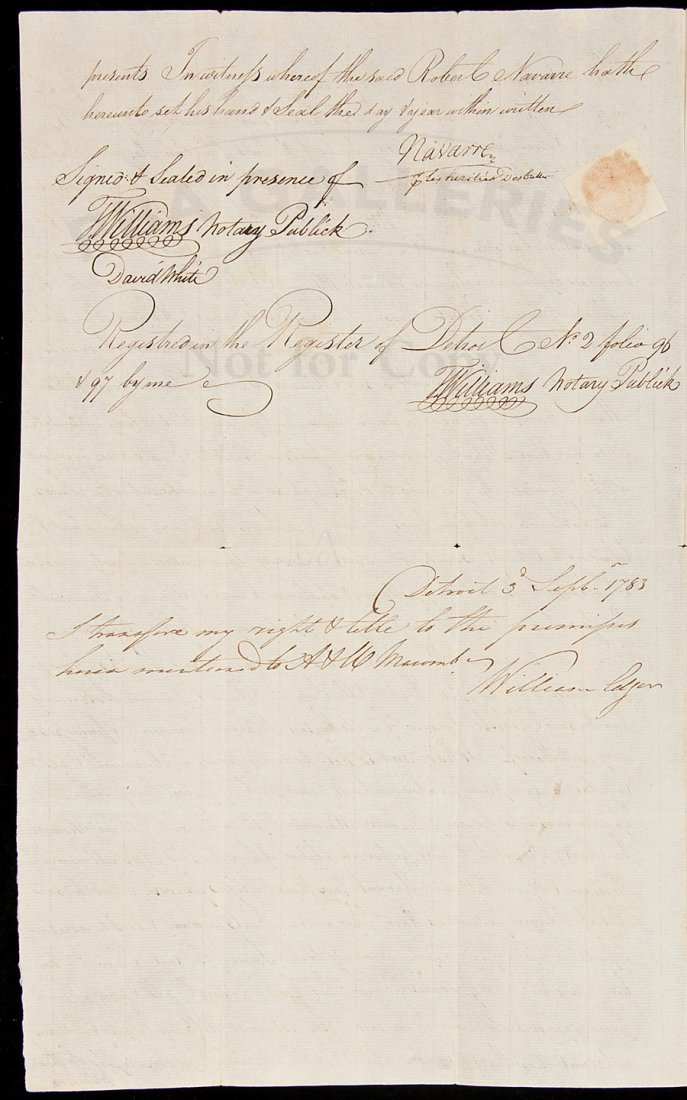 presents In witness whereof the said Robert Navarre hath
hereunto set his hand & Seal the day & year within written
Navarre
Signed & Sealed in presence of
TWilliams Notary Publick
David White
Registred in the Register of Detroit No. 2 folio 96
& 97 by me
TWilliams Notary Publick
Detroit 3d Sepbr. 1783
I transfere my right & title to the premises
herein mentioned to A & W Macomb
William Edgar
GALLERIES
Not for Copy